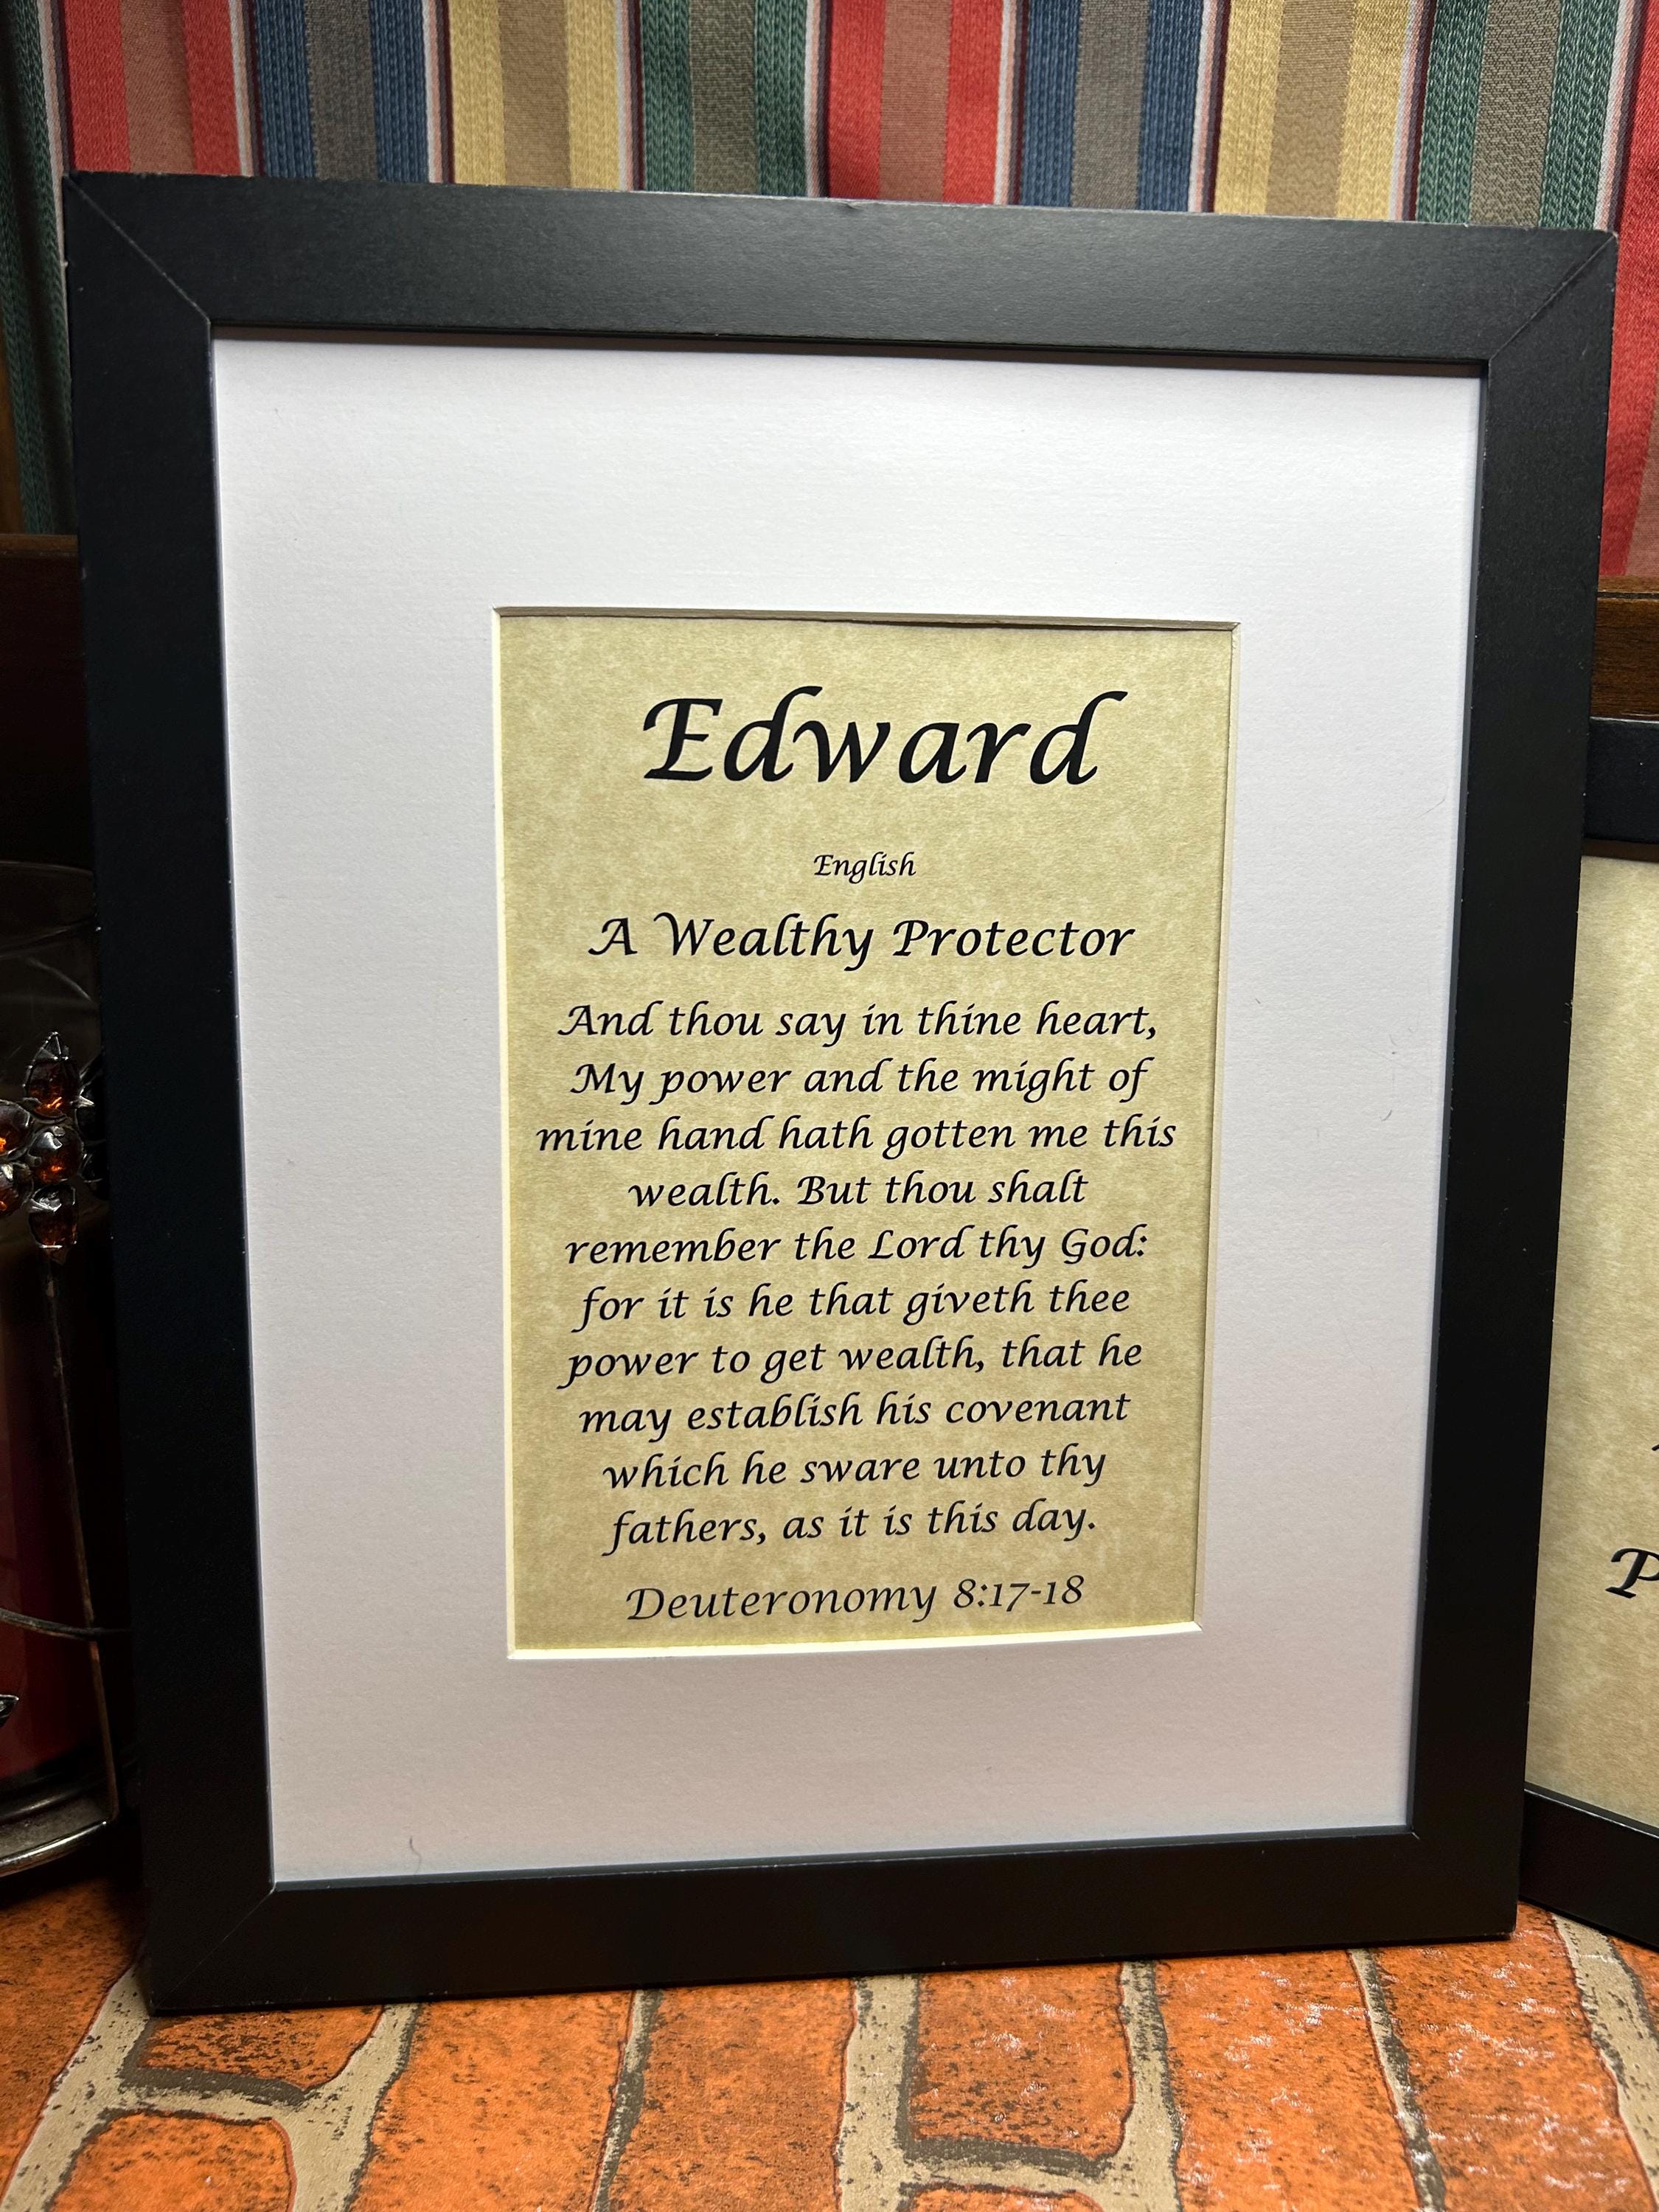 Edward
English
A Wealthy Protector
And thou say in thine heart,
My power and the might of
mine hand hath gotten me this
wealth. But thou shalt
remember the Lord thy God:
for it is he that giveth thee
power to get wealth, that he
may establish his covenant
which he sware unto thy
fathers, as it is this day.
Deuteronomy 8:17-18
P